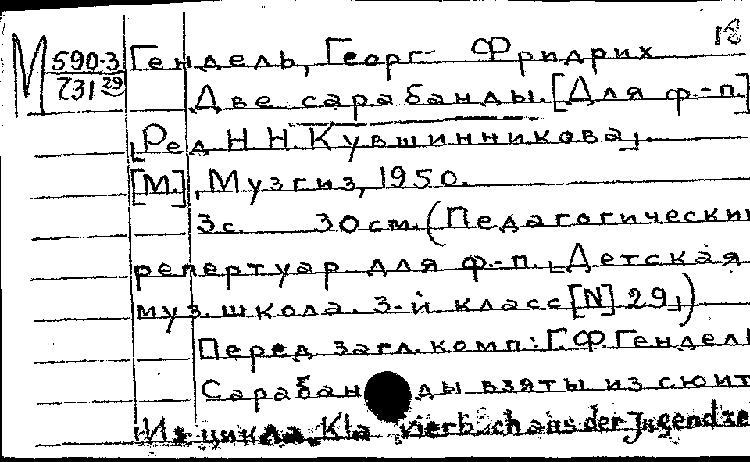 18
М 590-3 Гендель, Георг Фридрих
731 29 Две сарабанды. [Для ф.-п.]
[Ред Н Н. Кувшинникова].
[М.], Музгиз, 1950.
3с. 30см. (Педагогический
репертуар для ф.-п. [Детская
муз. школа. 3-й класс [N] 29])
Перед загл. комп.: Г.Ф. Гендель
Сарабанды взяты из сюит
Из цикла „Klavierbuch aus der Jugendze